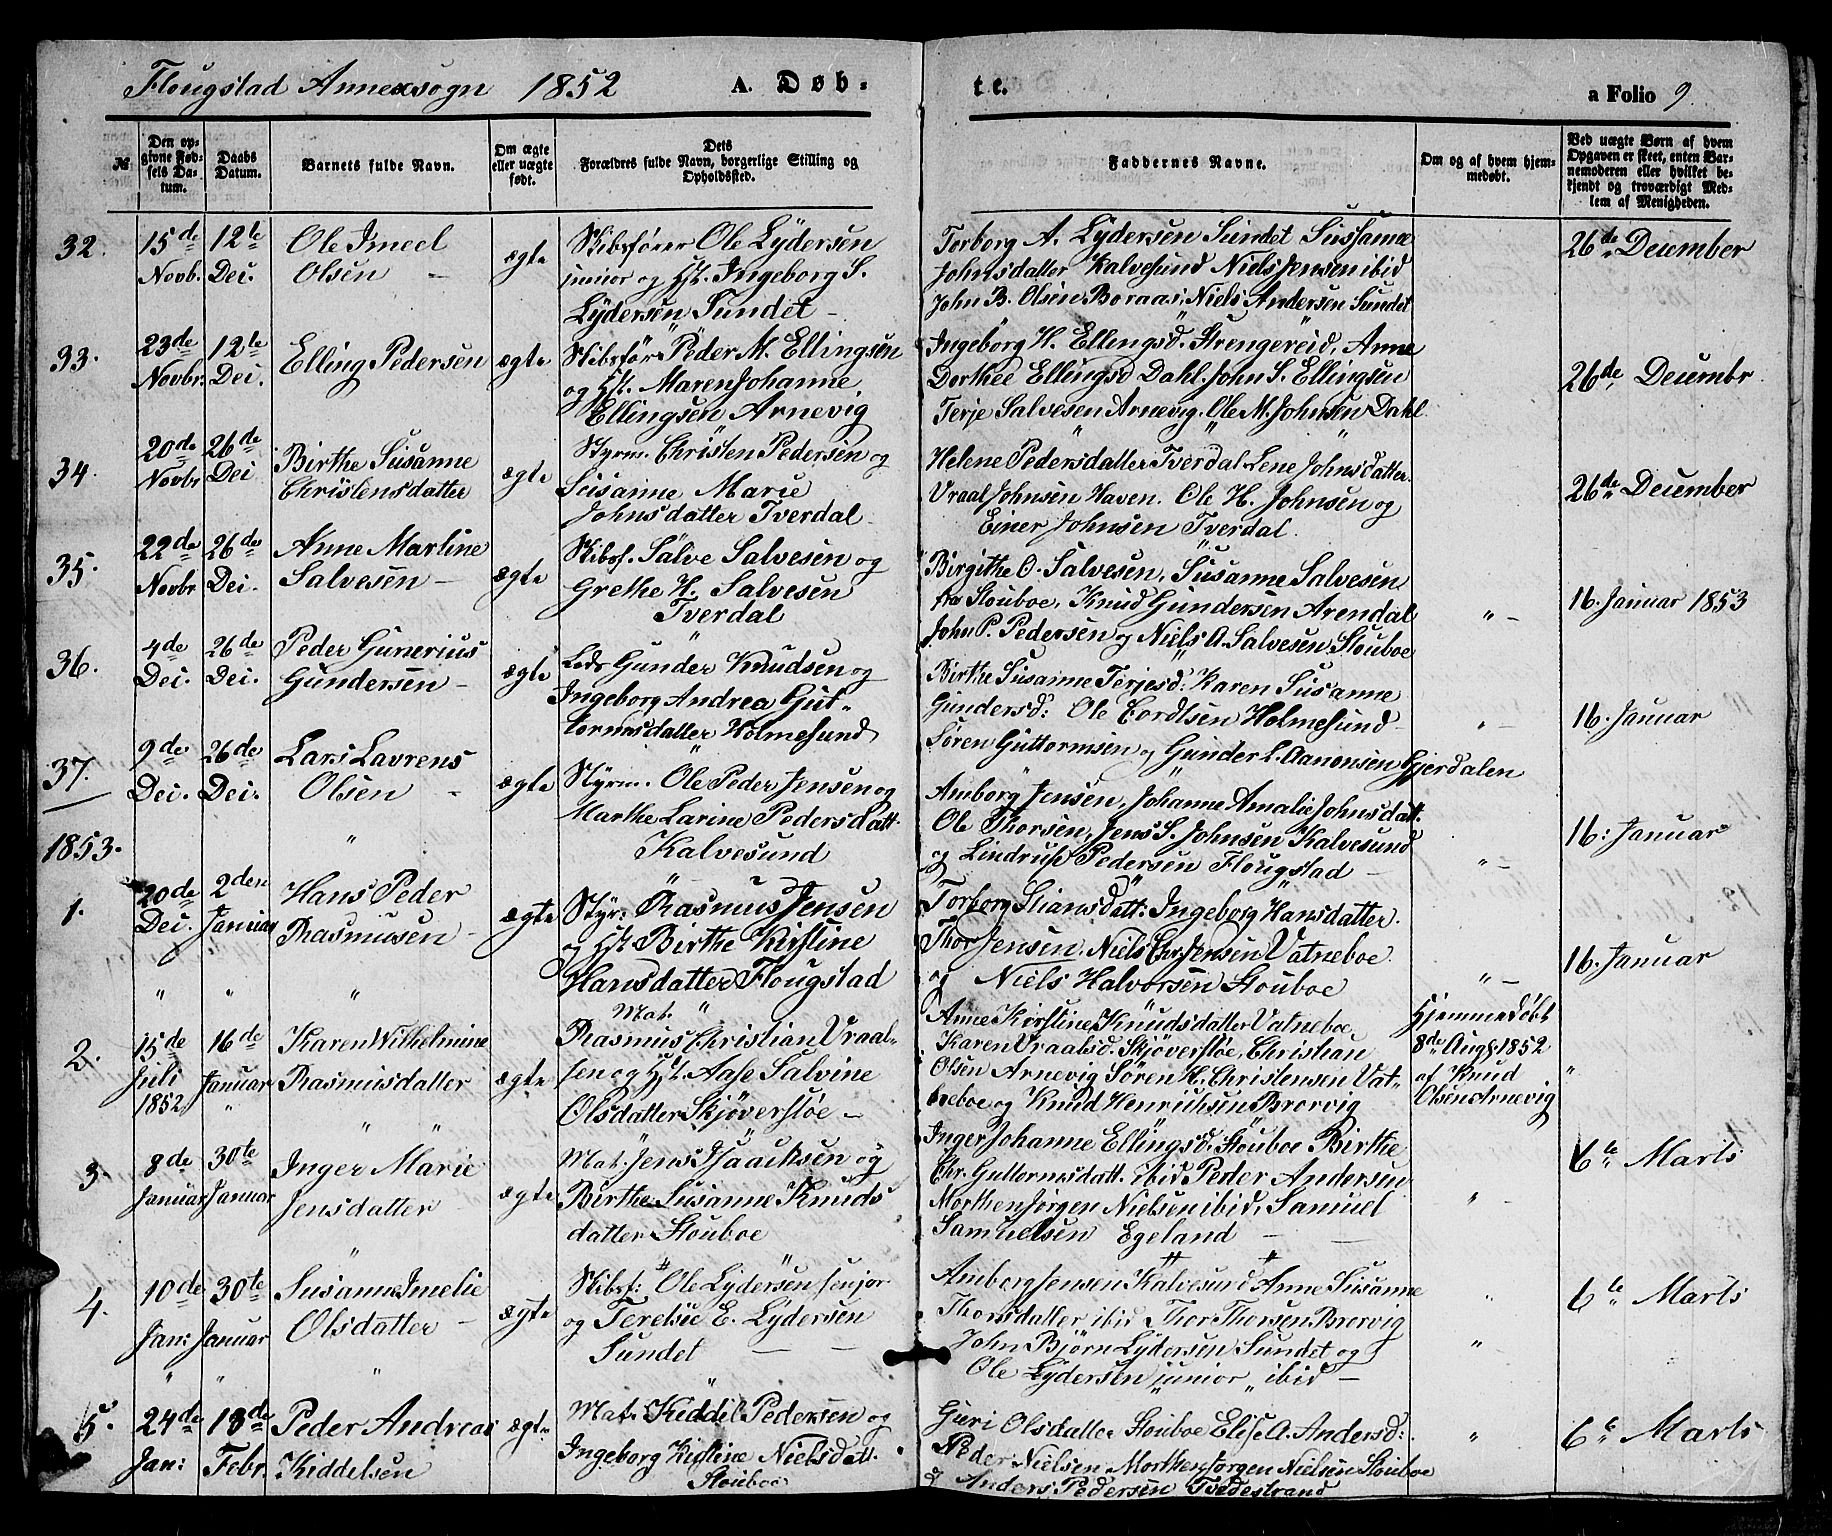 Flougstad Annexsogn 1852 A. Døb-
te. a Folio 9
№
Den op-
givne Fød-
sels Da-
tum.
Daabs
Datum.
Barnets fulde Navn.
Om ægte
eller uægte
født.
Dets
Forældres fulde Navn, borgerlige Stilling og
Opholdssted.
Faddernes Navne.
Om og af hvem hjem-
medøbt.
Ved uægte Børn af hvem
Opgaven er skeet, enten Bar-
nemoderen eller hvilket be-
kjendt og troværdigt Med-
lem af Menigheden.
32.
15de
Novb.
12te
Dec.
Ole Imeel
Olsen
ægte
Skibsfører Ole Lydersen
junior og Hst. Ingeborg S.
Lydersen Sundet
Torborg A. Lydersen Sundet Sussanne
Johnsdatter Kalvesund Niels Jensen ibid
John B. Olsen Boraas, Niels Andersen Sundet
26de December
33.
23de
Novbr.
12te
Dec.
Elling Pedersen
ægte
Skibsfør. Peder M. Ellingsen
og Hst. Maren Johanne
Ellingsen Arnevig
Ingeborg H. Ellingsd. Strengereid, Anne
Dorthee Ellingsd Dahl. John S. Ellingsen
Terje Salvesen Arnevig. Ole M. Johnsen Dahl
26de Decembr.
34.
20de
Novbr
26de
Dec
Birthe Susanne
Christensdatter
ægte
Styrm. Christen Pedersen og
Susanne Marie
Johnsdatter Tverdal
Helene Pedersdatter Tverdal Lene Johnsdatter.
Vraal Johnsen Haven. Ole H. Johnsen og
Einer Johnsen Tverdal.
26de December
35.
22de
Novbr
26de
Dec.
Anne Martine
Salvesen
ægte
Skibsf. Salve Salvesen og
Grethe H. Salvesen
Tverdal
Birgithe O. Salvesen, Susanne Salvesen
fra Stouboe, Knud Gundersen Arendal
John P. Pedersen og Niels A. Salvesen Stouboe
" -
16. Januar 1853
36.
4de
Dec.
26de
Dec.
Peder Gunerius
Gundersen
ægte
Lods Gunder Knudsen og
Ingeborg Andrea Gut-
tormsdatter Holmesund
Birthe Susanne Terjesd: Karen Susanne
Gundersd: Ole Cordtsen Holmesund
Søren Guttormsen og Gunder L. Aanonsen Gjerdalen
" -
16. Januar
37.
9de
Dec.
26de
Dec.
Lars Lavrens
Olsen
ægte
Styrm. Ole Peder Jensen og
Marthe Larine Pedersdatt.
Kalvesund
Amborg Jensen, Johanne Amalie Johnsdatt.
Ole Thorsen, Jens S. Johnsen Kalvesund
og Lindrup Pedersen Flougstad
" -
16: Januar
1853.
"
1.
20de
Dec.
2den
Januar
Hans Peder
Rasmusen
ægte
Styr. Rasmus Jensen
og Hst Birthe Kirstine
Hansdatter Flougstad
Torborg Stiansdatt: Ingeborg Hansdatter.
Thor Jensen, Niels Chr Jensen Vatneboe
og Niels Halvorsen Stouboe
" -
16. Januar
" " "
2.
15de
Juli
1852.
16de
Januar
"
Karen Wilhelmine
Rasmusdatter
ægte
Mat. "
Rasmus Christian Vraal-
sen og Hst. Aase Salvine
Olsdatter Skjøverstøe
Anne Kirstine Knudsdatter Vatneboe,
Karen Vraalsd. Skjøverstøe, Christian
Olsen Arnevig Søren H. Christensen Vat-
neboe og Knud Henrichsen Brorvig
Hjemmedøbt
8de Augs 1852
af Knud
Olsen Arnevig
"
3.
8de
Januar
30te
Januar
Inger Marie
Jensdatter
ægte
Mat. Jens Isaachsen og
Birthe Susanne Knuds
datter Stouboe
Inger Johanne Ellingsd. Stouboe Birthe
Chr. Guttormsdatt. ibid Peder Andersen
Morthen Jørgen Nielsen ibid, Samuel
Samuelsen Egeland
" -
6te Marts
4.
10de
Jan:
30te
Januar
Susanne Imelie
Olsdatter
ægte
Skibsf: Ole Lydersen senjor
og Terelsie E. Lydersen
Sundet
Amborg Jensen Kalvesund Anne Susanne
Thorsdatter ibid Thor Thorsen Brorvig
John Bjørn Lydersen Sundet og
Ole Lydersen "junior" ibid
"
6te Marts
5.
24de
Jan:
13de
Febr.
Peder Andreas
Kiddelsen
ægte
Mat. Kiddel Pedersen og
Ingeborg Kirstine Nielsdatt.
Stouboe
Guri Olsdatter Stouboe Elise A. Andersd:
Peder Nielsen Morthen Jørgen Nielsen Stouboe
og Anders Pedersen Tvedestrand
"
6te Marts